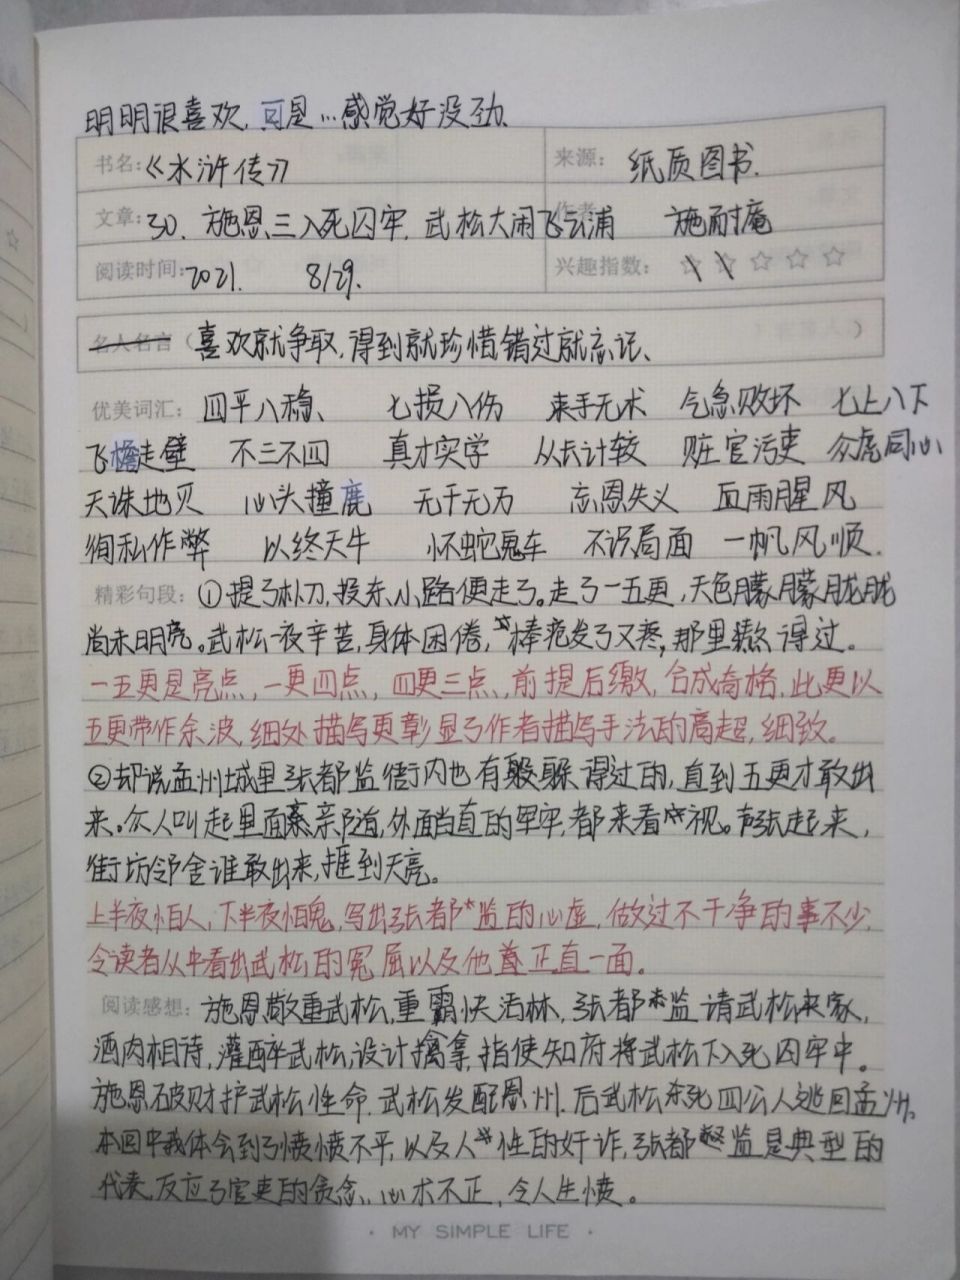 明明很喜欢,可是…感觉好没劲、
书名:《水浒传》 来源: 纸质图书.
文章:30. 施恩三入死囚牢. 武松大闹飞云浦 作者 施耐庵
阅读时间:2021. 8/29. 兴趣指数: ☆☆☆☆☆
名人名言( 喜欢就争取,得到就珍惜错过就忘记、 )
优美词汇: 四平八稳、 七损八伤 束手无术 气急败坏 七上八下
飞檐走壁 不三不四 真才实学 从长计较 赃官污吏 众虎同心
天诛地灭 心头撞鹿 无千无万 忘恩失义 血雨腥风
徇私作弊 以终天年 怀蛇鬼车 不识局面 一帆风顺.
精彩句段: ①提了朴刀,投东小路便走了。走了一五更,天色朦朦胧胧
尚未明亮。武松一夜辛苦,身体困倦,棒疮发了又疼,那里熬得过。
一五更是亮点,一更四点,四更三点,前提后缴,合成奇格,此更以
五更带作余波,细处描写更彰显了作者描写手法的高超,细致。
②却说孟州城里张都监衙内也有躲躲得过的,直到五更才敢出
来。众人叫起里面亲随,外面当直的军牢,都来看视。声张起来,
街坊邻舍谁敢出来,捱到天亮。
上半夜怕人,下半夜怕鬼,写出张都监的心虚,做过不干净的事不少,
令读者从中看出武松的冤屈以及他正直一面。
阅读感想: 施恩敬重武松,重霸快活林,张都监请武松来家,
酒肉相待,灌醉武松,设计擒拿,指使知府将武松下入死囚牢中。
施恩破财护武松性命.武松发配恩州.后武松杀死四公人逃回孟州。
本回中我体会到了愤愤不平,以及人性的奸诈,张都监是典型的
代表,反应了官吏的贪念、心术不正,令人生愤。
· MY SIMPLE LIFE ·